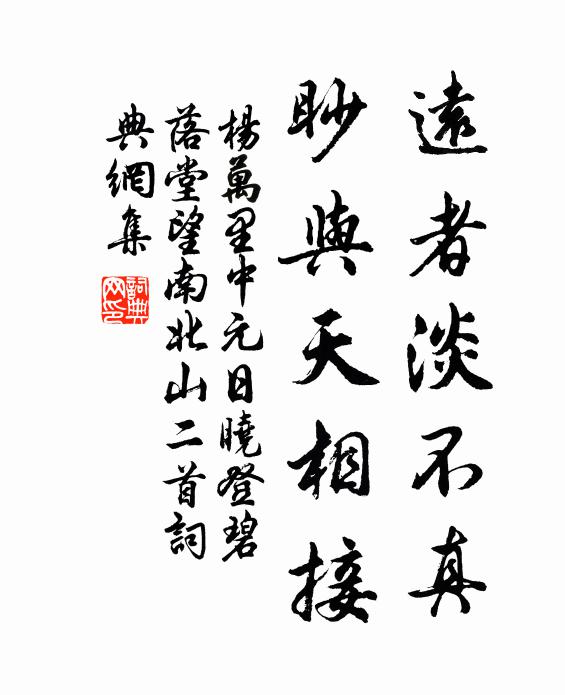 遠者淡不真
眇與天相接
楊萬里中元日曉登碧
落堂望南北山二首詞
典網集
詞典
网印